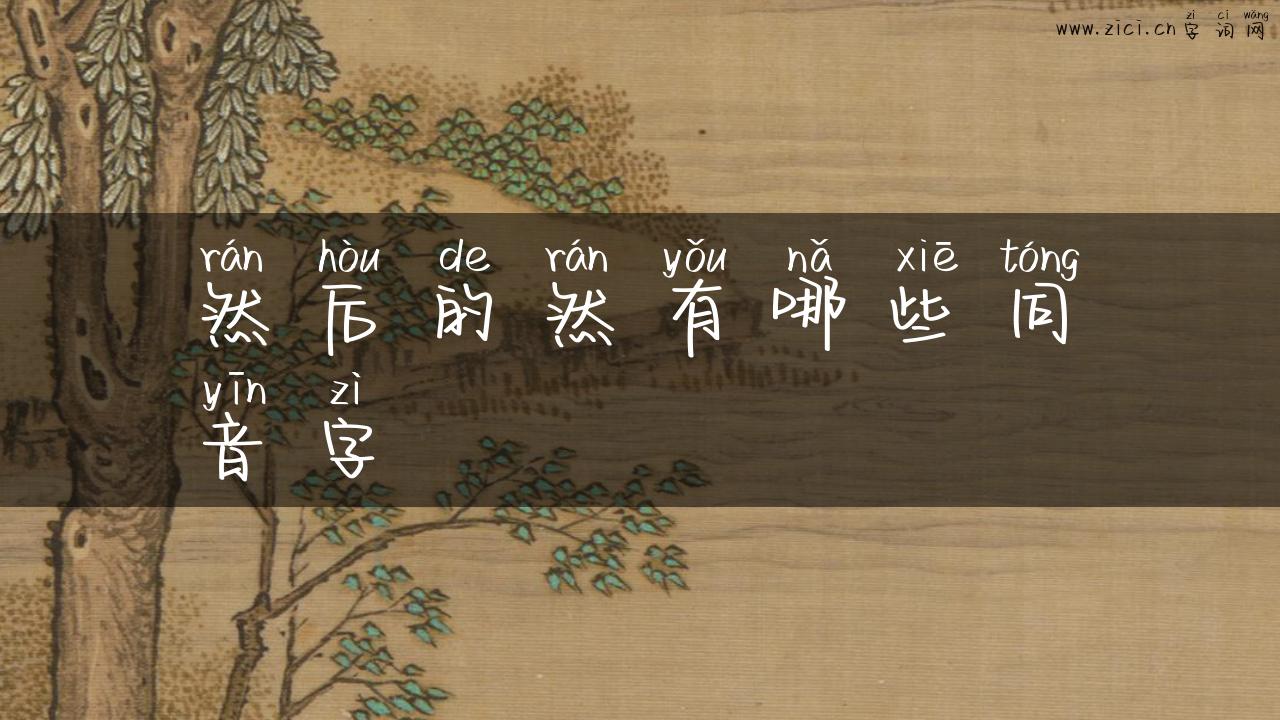 zì cí wǎng
www.zici.cn 字词网
rán hòu de rán yǒu nǎ xiē tóng
然后的然有哪些同
yīn zì
音字